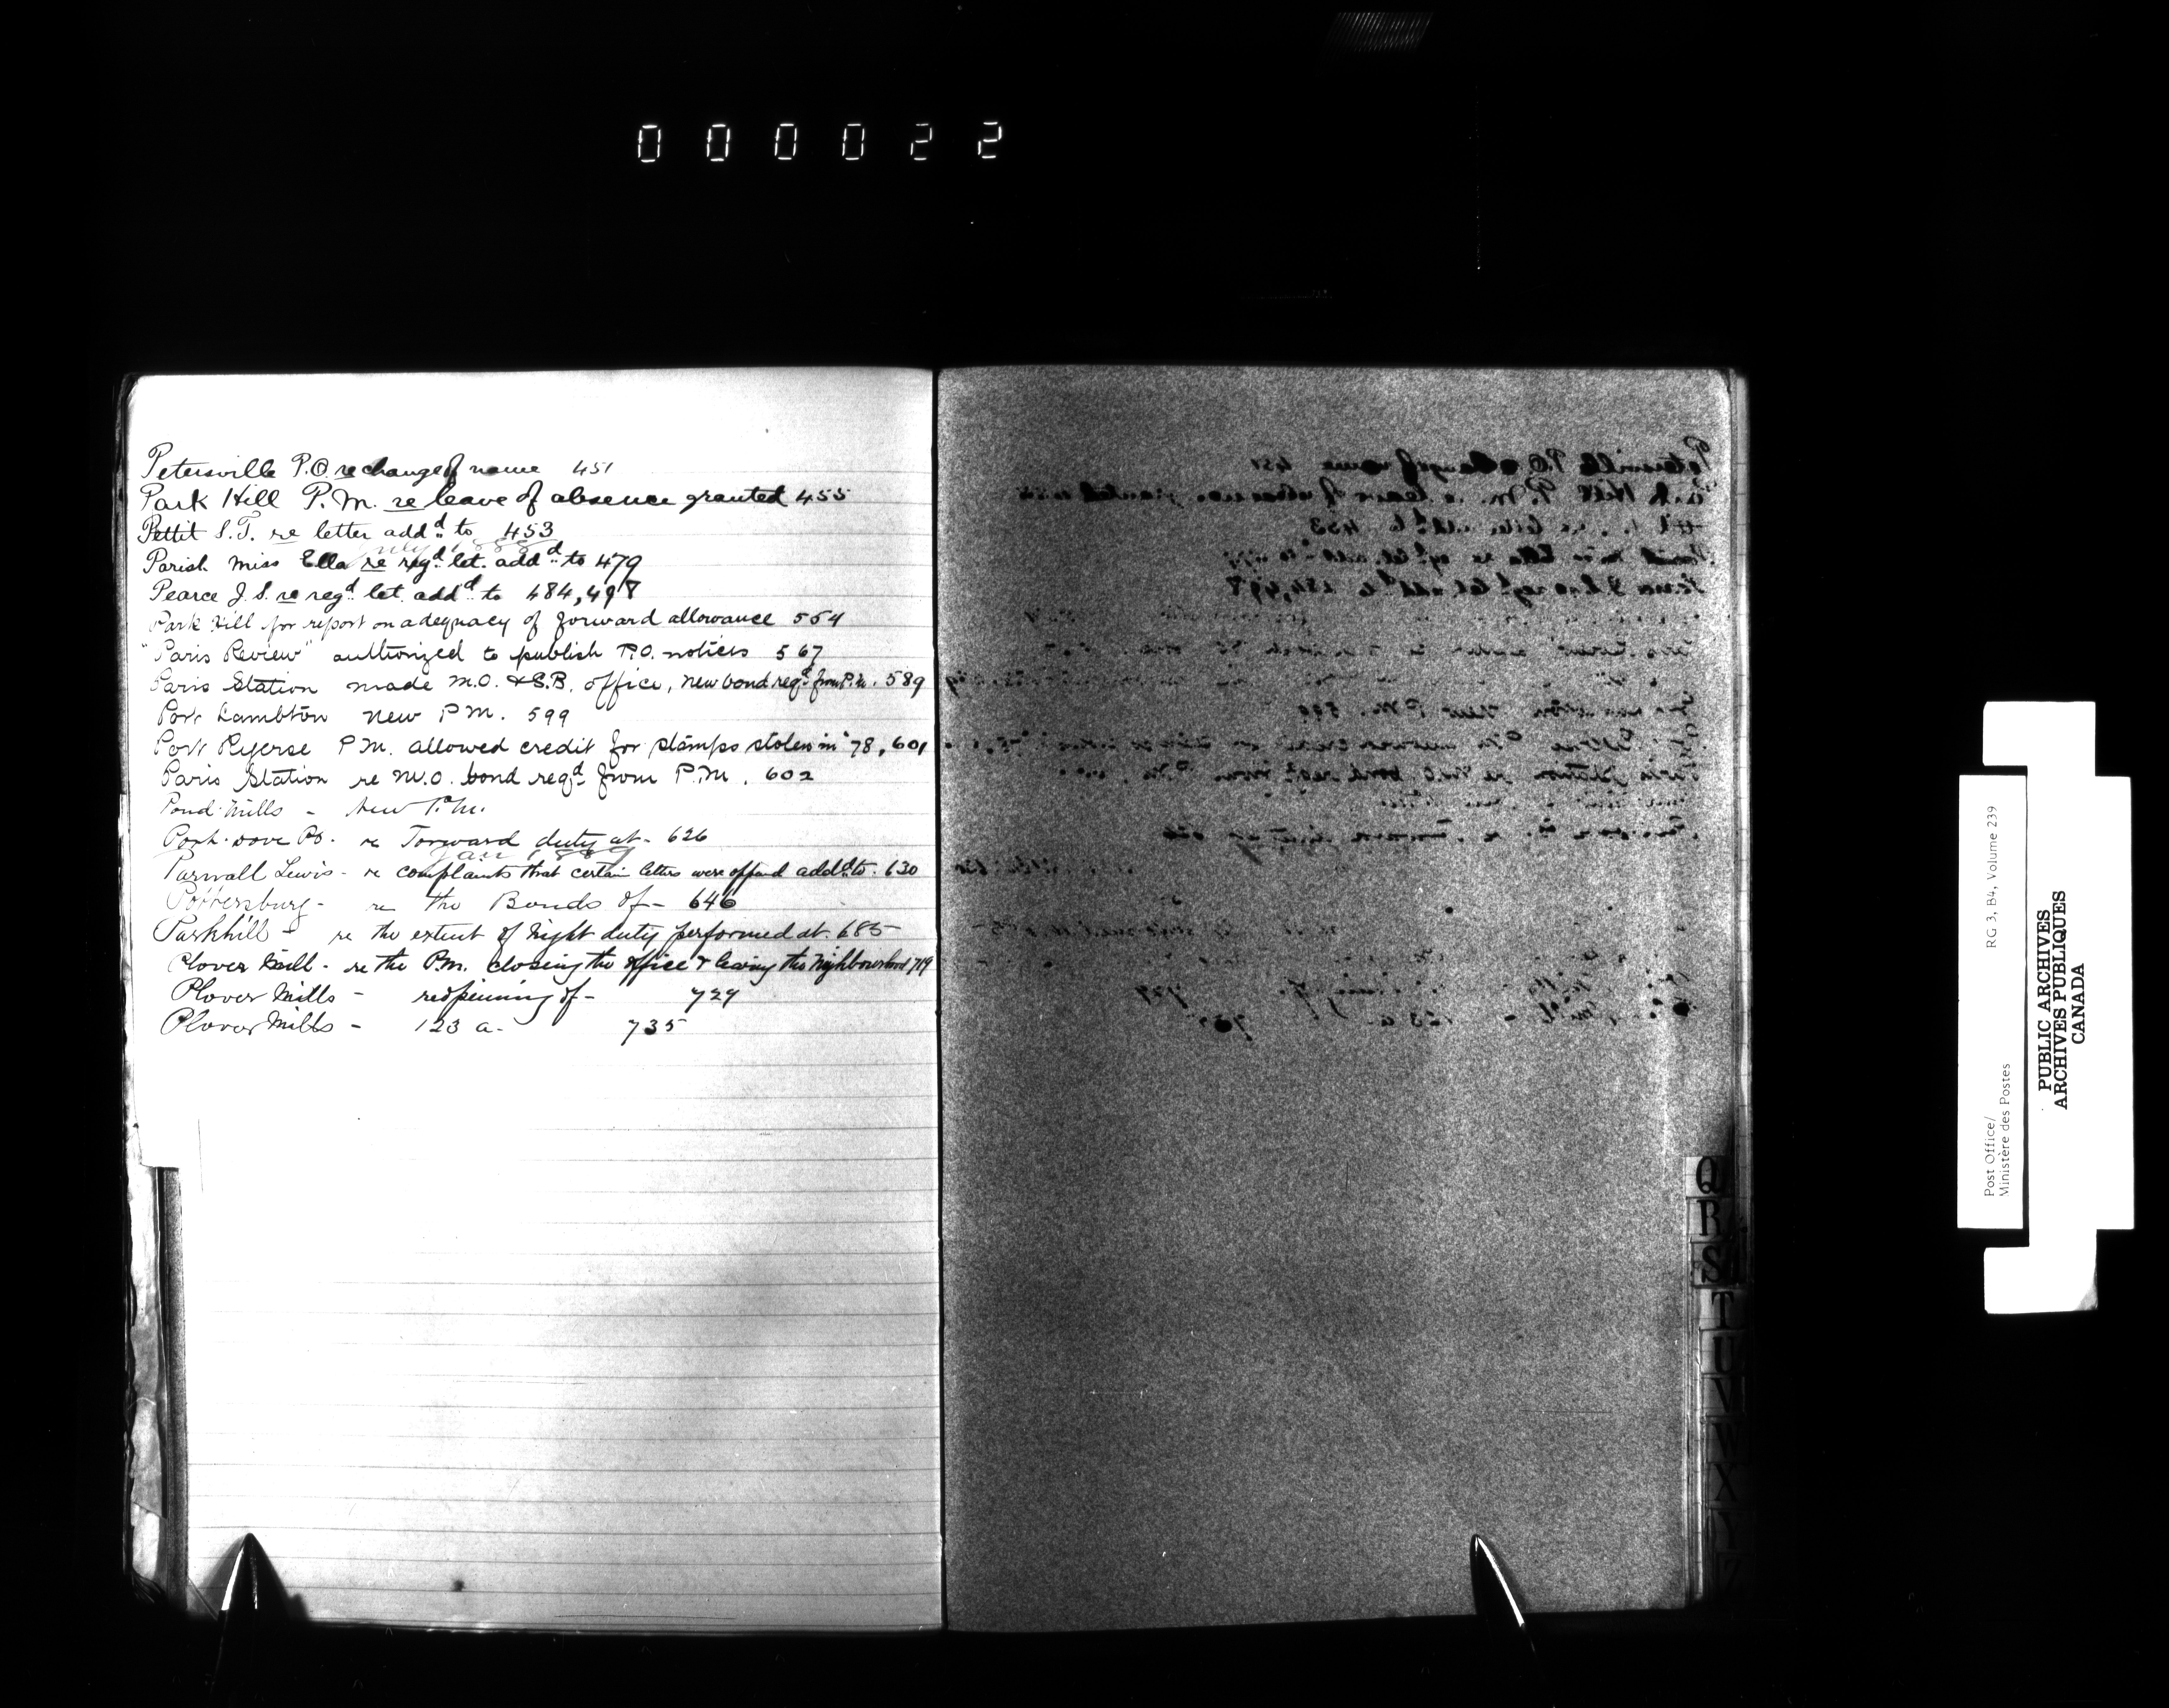 000022
Petersville P.O. re change of name 451
Park Hill P.M. re leave of absence granted 455
Pettit S.T. re letter addd to 453
July 1888
Parish Miss Ella re regd let. addd to 479
Pearce J.S. re regd let. addd to 484, 498
Park Hill for report on adequacy of forward allowance 554
"Paris Review" authorized to publish P.O. notices 567
Paris Station made M.O. & S.B. office, new bond reqd from P.M. 589
Port Lambton new P.M. 599
Port Ryerse P.M. allowed credit for stamps stolen in '78, 601
Paris Station re M.O. bond reqd from P.M. 602
Pond Mills - New P.M.
Port Dove Po. re Forward duty at - 626
Jan 1889
Parnall Lewis - re complaints that certain letters were addd to - 630
Pottersburg - re the Bonds of - 646
Parkhill - re the extent of night duty performed at. 685
Plover Mill - re the P.M. closing the office & leaving the Neighbourhood 719
Plover Mills - reopening of - 729
Plover Mills - 123 a - 735
Q
R
S
T
U
V
W
X
Y
Z
Post Office/ RG 3, B4, Volume 239
Ministère des Postes
PUBLIC ARCHIVES
ARCHIVES PUBLIQUES
CANADA